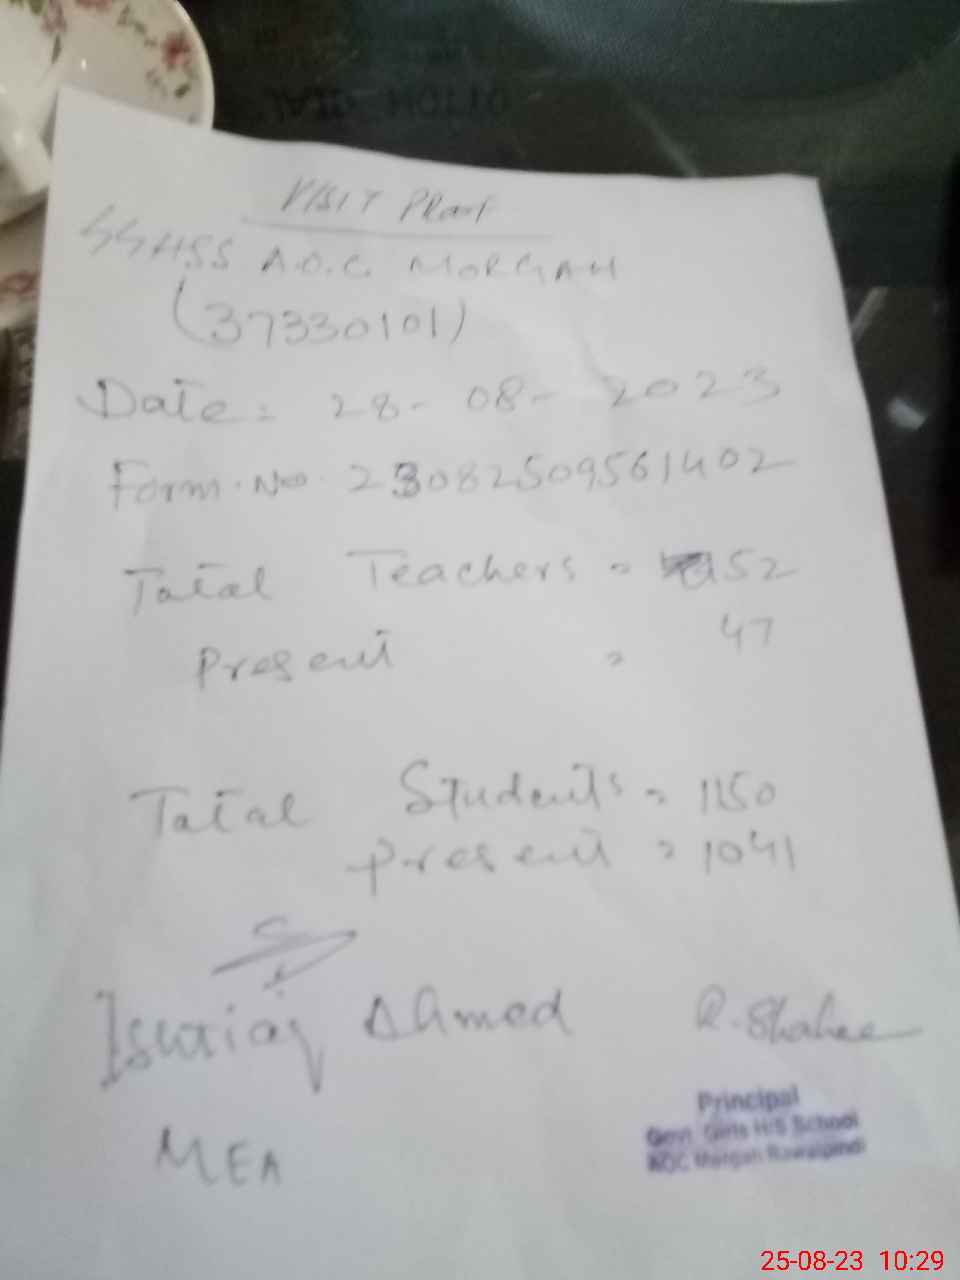 VISIT PRoof
GGHSS A.O.C. MORGAH
(37330101)
Date: 28-08-2023
Form.No. 23082509561402
Total Teachers = 52
Present = 47
Total Students = 1150
Present = 1041
Ahmed
R.Shahee
MEA
Principal
Govt. Girls H/S School
AOC Morgah Rawalpindi
25-08-23 10:29